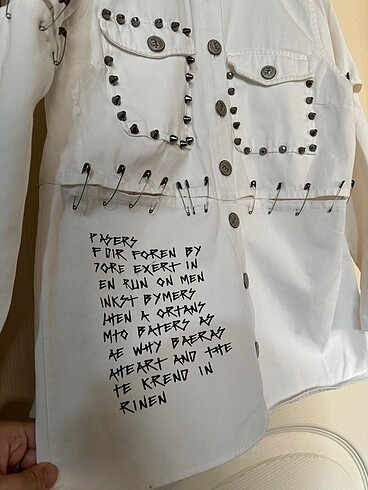 PASERS
FDIR FOREN BY
7ORE EXERT IN
EN RUN ON MEN
INKST BYMERS
WHEN A ORTANS
MTO BATERS AS
AE WHY BAERAS
AHEART AND THE
TE KREND IN
RINEN